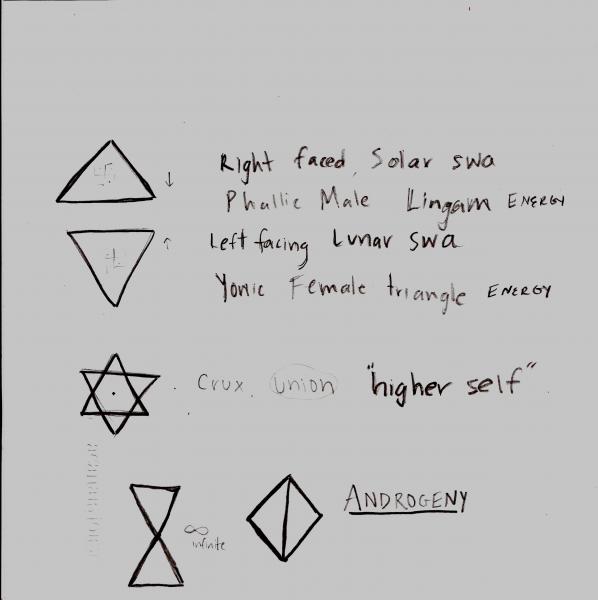 Right faced, Solar swa
Phallic Male Lingam ENERGY
Left facing Lunar swa
Yonic Female triangle ENERGY
Crux, Union "higher self"
ANDROGENY
∞
infinite